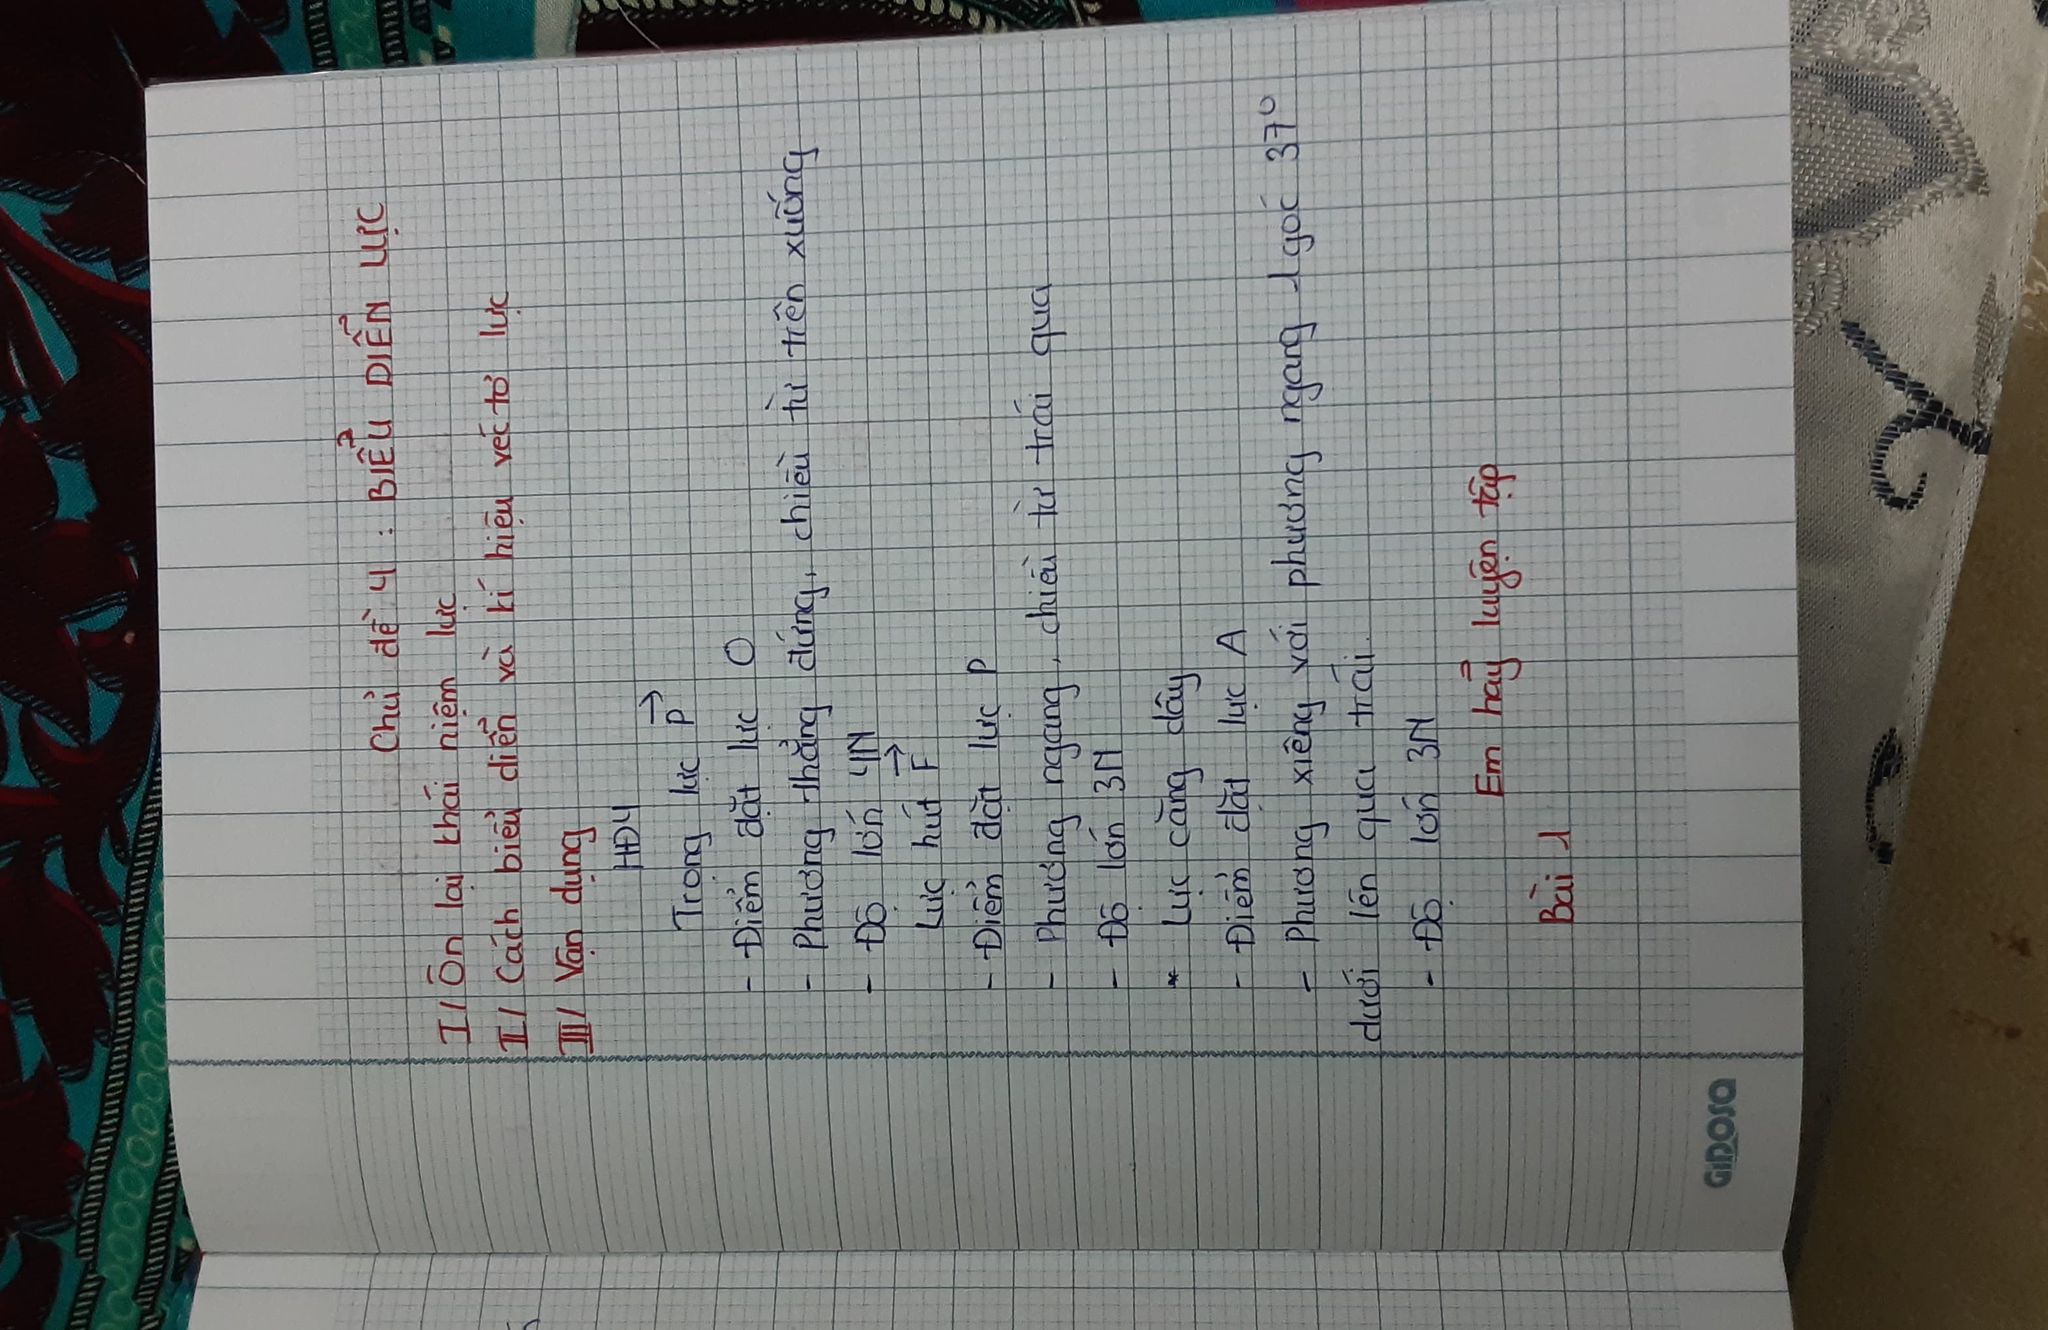 Chủ đề 4 : BIỂU DIỄN LỰC
I/ Ôn lại khái niệm lực
II/ Cách biểu diễn và kí hiệu véc tơ lực
III/ Vận dụng
HĐ4
Trọng lực P→
- Điểm đặt lực O
- Phương thẳng đứng, chiều từ trên xuống
- Độ lớn 4N
Lực hút F→
- Điểm đặt lực P
- Phương ngang, chiều từ trái qua
- Độ lớn 3N
* Lực căng dây
- Điểm đặt lực A
- Phương xiêng với phương ngang 1 góc 37°
dưới lên qua trái.
- Độ lớn 3N
Em hãy luyện tập
Bài 1
GIDOSA